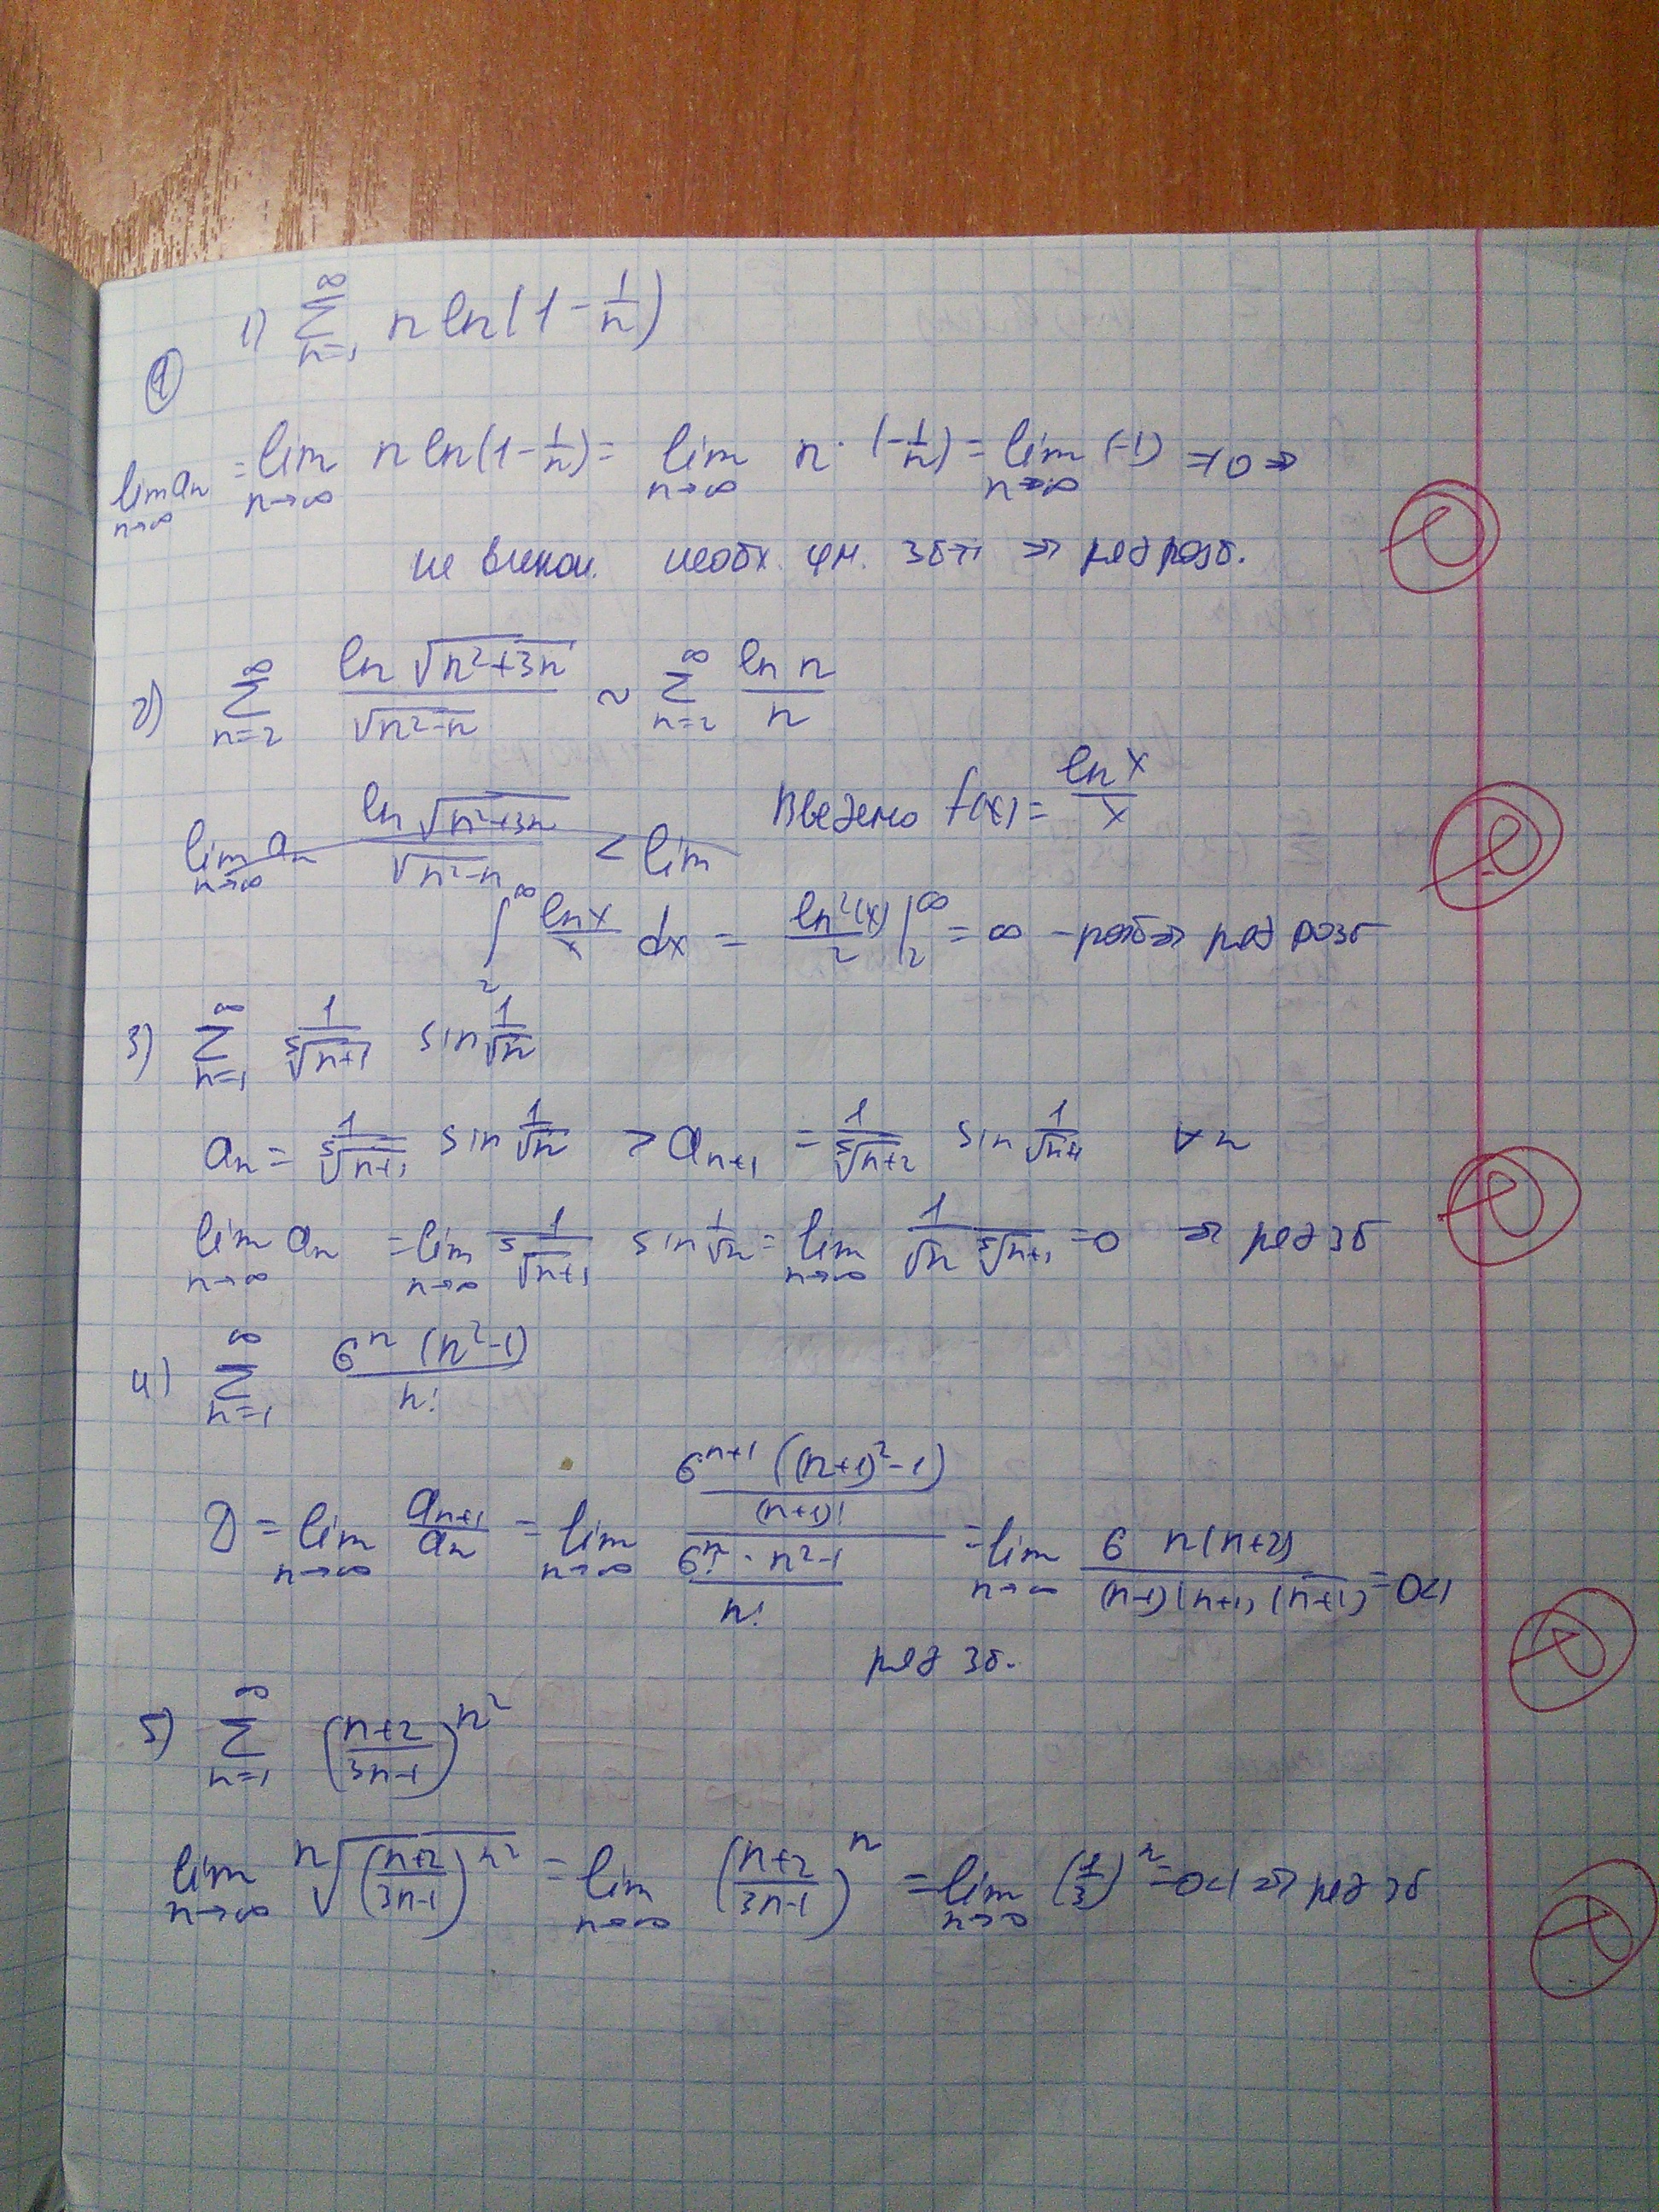 1) ∑_{n=1}^{∞} n ln(1 - 1/n)
①
lim_{n→∞} a_n = lim_{n→∞} n ln(1 - 1/n) = lim_{n→∞} n · (-1/n) = lim_{n→∞} (-1) ≠ 0 ⇒
не викон. необх. ум. зб-ті ⇒ ряд розб.
2) ∑_{n=2}^{∞} ln √(n²+3n) / √(n²-n) ~ ∑_{n=2}^{∞} ln n / n
lim_{n→∞} a_n ln √(n²+3n) / √(n²-n) < lim Введемо f(x) = ln x / x
∫_2^∞ ln x / x dx = ln²(x) / 2 |_2^∞ = ∞ - розб ⇒ ряд розб
3) ∑_{n=1}^{∞} 1/⁵√(n+1) sin 1/√n
a_n = 1/⁵√(n+1) sin 1/√n > a_{n+1} = 1/⁵√(n+2) sin 1/√(n+1) ∀ n
lim_{n→∞} a_n = lim_{n→∞} 1/⁵√(n+1) sin 1/√n = lim_{n→∞} 1/(√n ⁵√(n+1)) = 0 ⇒ ряд зб
4) ∑_{n=1}^{∞} 6^n (n²-1) / n!
D = lim_{n→∞} a_{n+1}/a_n = lim_{n→∞} (6^{n+1} ((n+1)²-1) / (n+1)!) / (6^n · n²-1 / n!) = lim_{n→∞} 6 n(n+2) / (n-1)(n+1)(n+1) = 0<1
ряд зб.
5) ∑_{n=1}^{∞} ((n+2)/(3n-1))^{n²}
lim_{n→∞} ⁿ√((n+2)/(3n-1))^{n²} = lim_{n→∞} ((n+2)/(3n-1))^n = lim_{n→∞} (1/3)^n = 0<1 ⇒ ряд зб